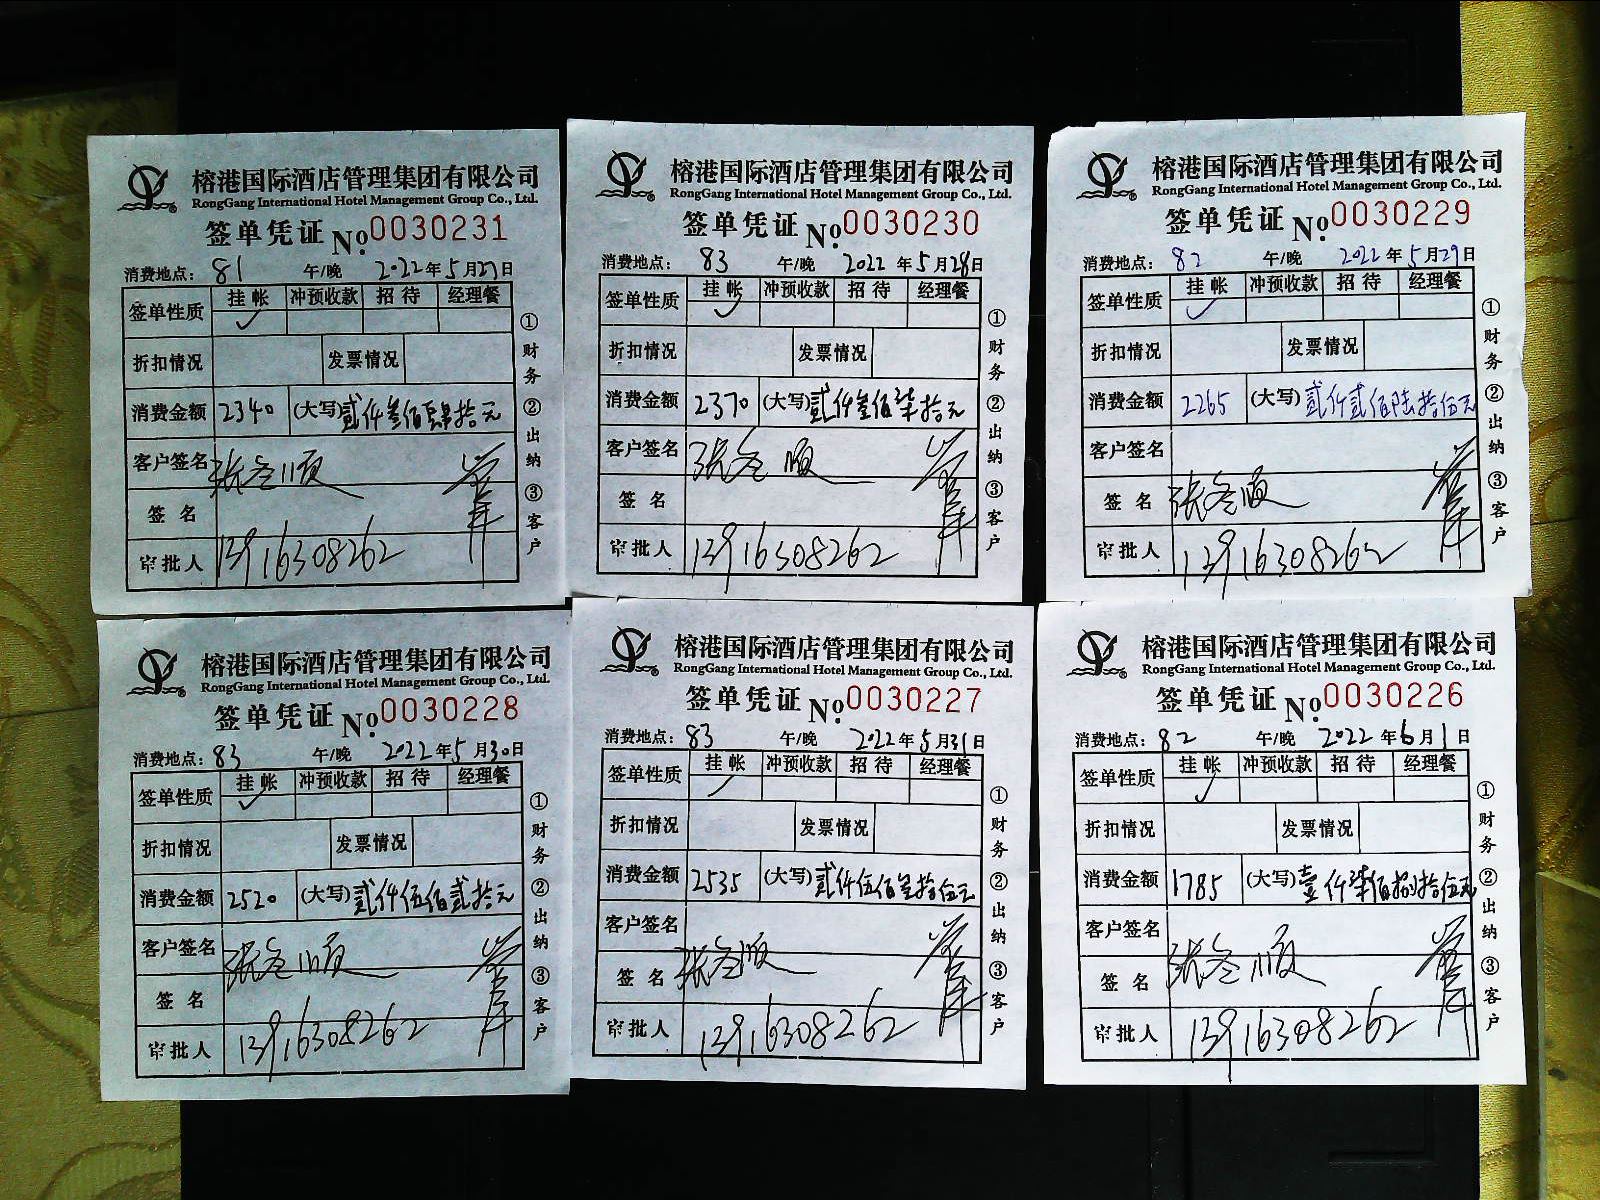 榕港国际酒店管理集团有限公司
RongGang International Hotel Management Group Co., Ltd.
签单凭证 No.0030231
消费地点: 81 午/晚 2022年5月27日
签单性质 挂帐 冲预收款 招待 经理餐
✓
折扣情况 发票情况
消费金额 2340 (大写)贰仟叁佰肆拾元
客户签名
签名
审批人 13916308262
①财务 ②出纳 ③客户
榕港国际酒店管理集团有限公司
RongGang International Hotel Management Group Co., Ltd.
签单凭证 No.0030230
消费地点: 83 午/晚 2022年5月28日
签单性质 挂帐 冲预收款 招待 经理餐
✓
折扣情况 发票情况
消费金额 2370 (大写)贰仟叁佰柒拾元
客户签名
签名
审批人 13916308262
①财务 ②出纳 ③客户
榕港国际酒店管理集团有限公司
RongGang International Hotel Management Group Co., Ltd.
签单凭证 No.0030229
消费地点: 82 午/晚 2022年5月29日
签单性质 挂帐 冲预收款 招待 经理餐
✓
折扣情况 发票情况
消费金额 2265 (大写)贰仟贰佰陆拾伍元
客户签名
签名
审批人 13916308262
①财务 ②出纳 ③客户
榕港国际酒店管理集团有限公司
RongGang International Hotel Management Group Co., Ltd.
签单凭证 No.0030228
消费地点: 83 午/晚 2022年5月30日
签单性质 挂帐 冲预收款 招待 经理餐
✓
折扣情况 发票情况
消费金额 2520 (大写)贰仟伍佰贰拾元
客户签名
签名
审批人 13916308262
①财务 ②出纳 ③客户
榕港国际酒店管理集团有限公司
RongGang International Hotel Management Group Co., Ltd.
签单凭证 No.0030227
消费地点: 83 午/晚 2022年5月31日
签单性质 挂帐 冲预收款 招待 经理餐
✓
折扣情况 发票情况
消费金额 2535 (大写)贰仟伍佰叁拾伍元
客户签名
签名
审批人 13916308262
①财务 ②出纳 ③客户
榕港国际酒店管理集团有限公司
RongGang International Hotel Management Group Co., Ltd.
签单凭证 No.0030226
消费地点: 82 午/晚 2022年6月1日
签单性质 挂帐 冲预收款 招待 经理餐
✓
折扣情况 发票情况
消费金额 1785 (大写)壹仟柒佰捌拾伍元
客户签名
签名
审批人 13916308262
①财务 ②出纳 ③客户